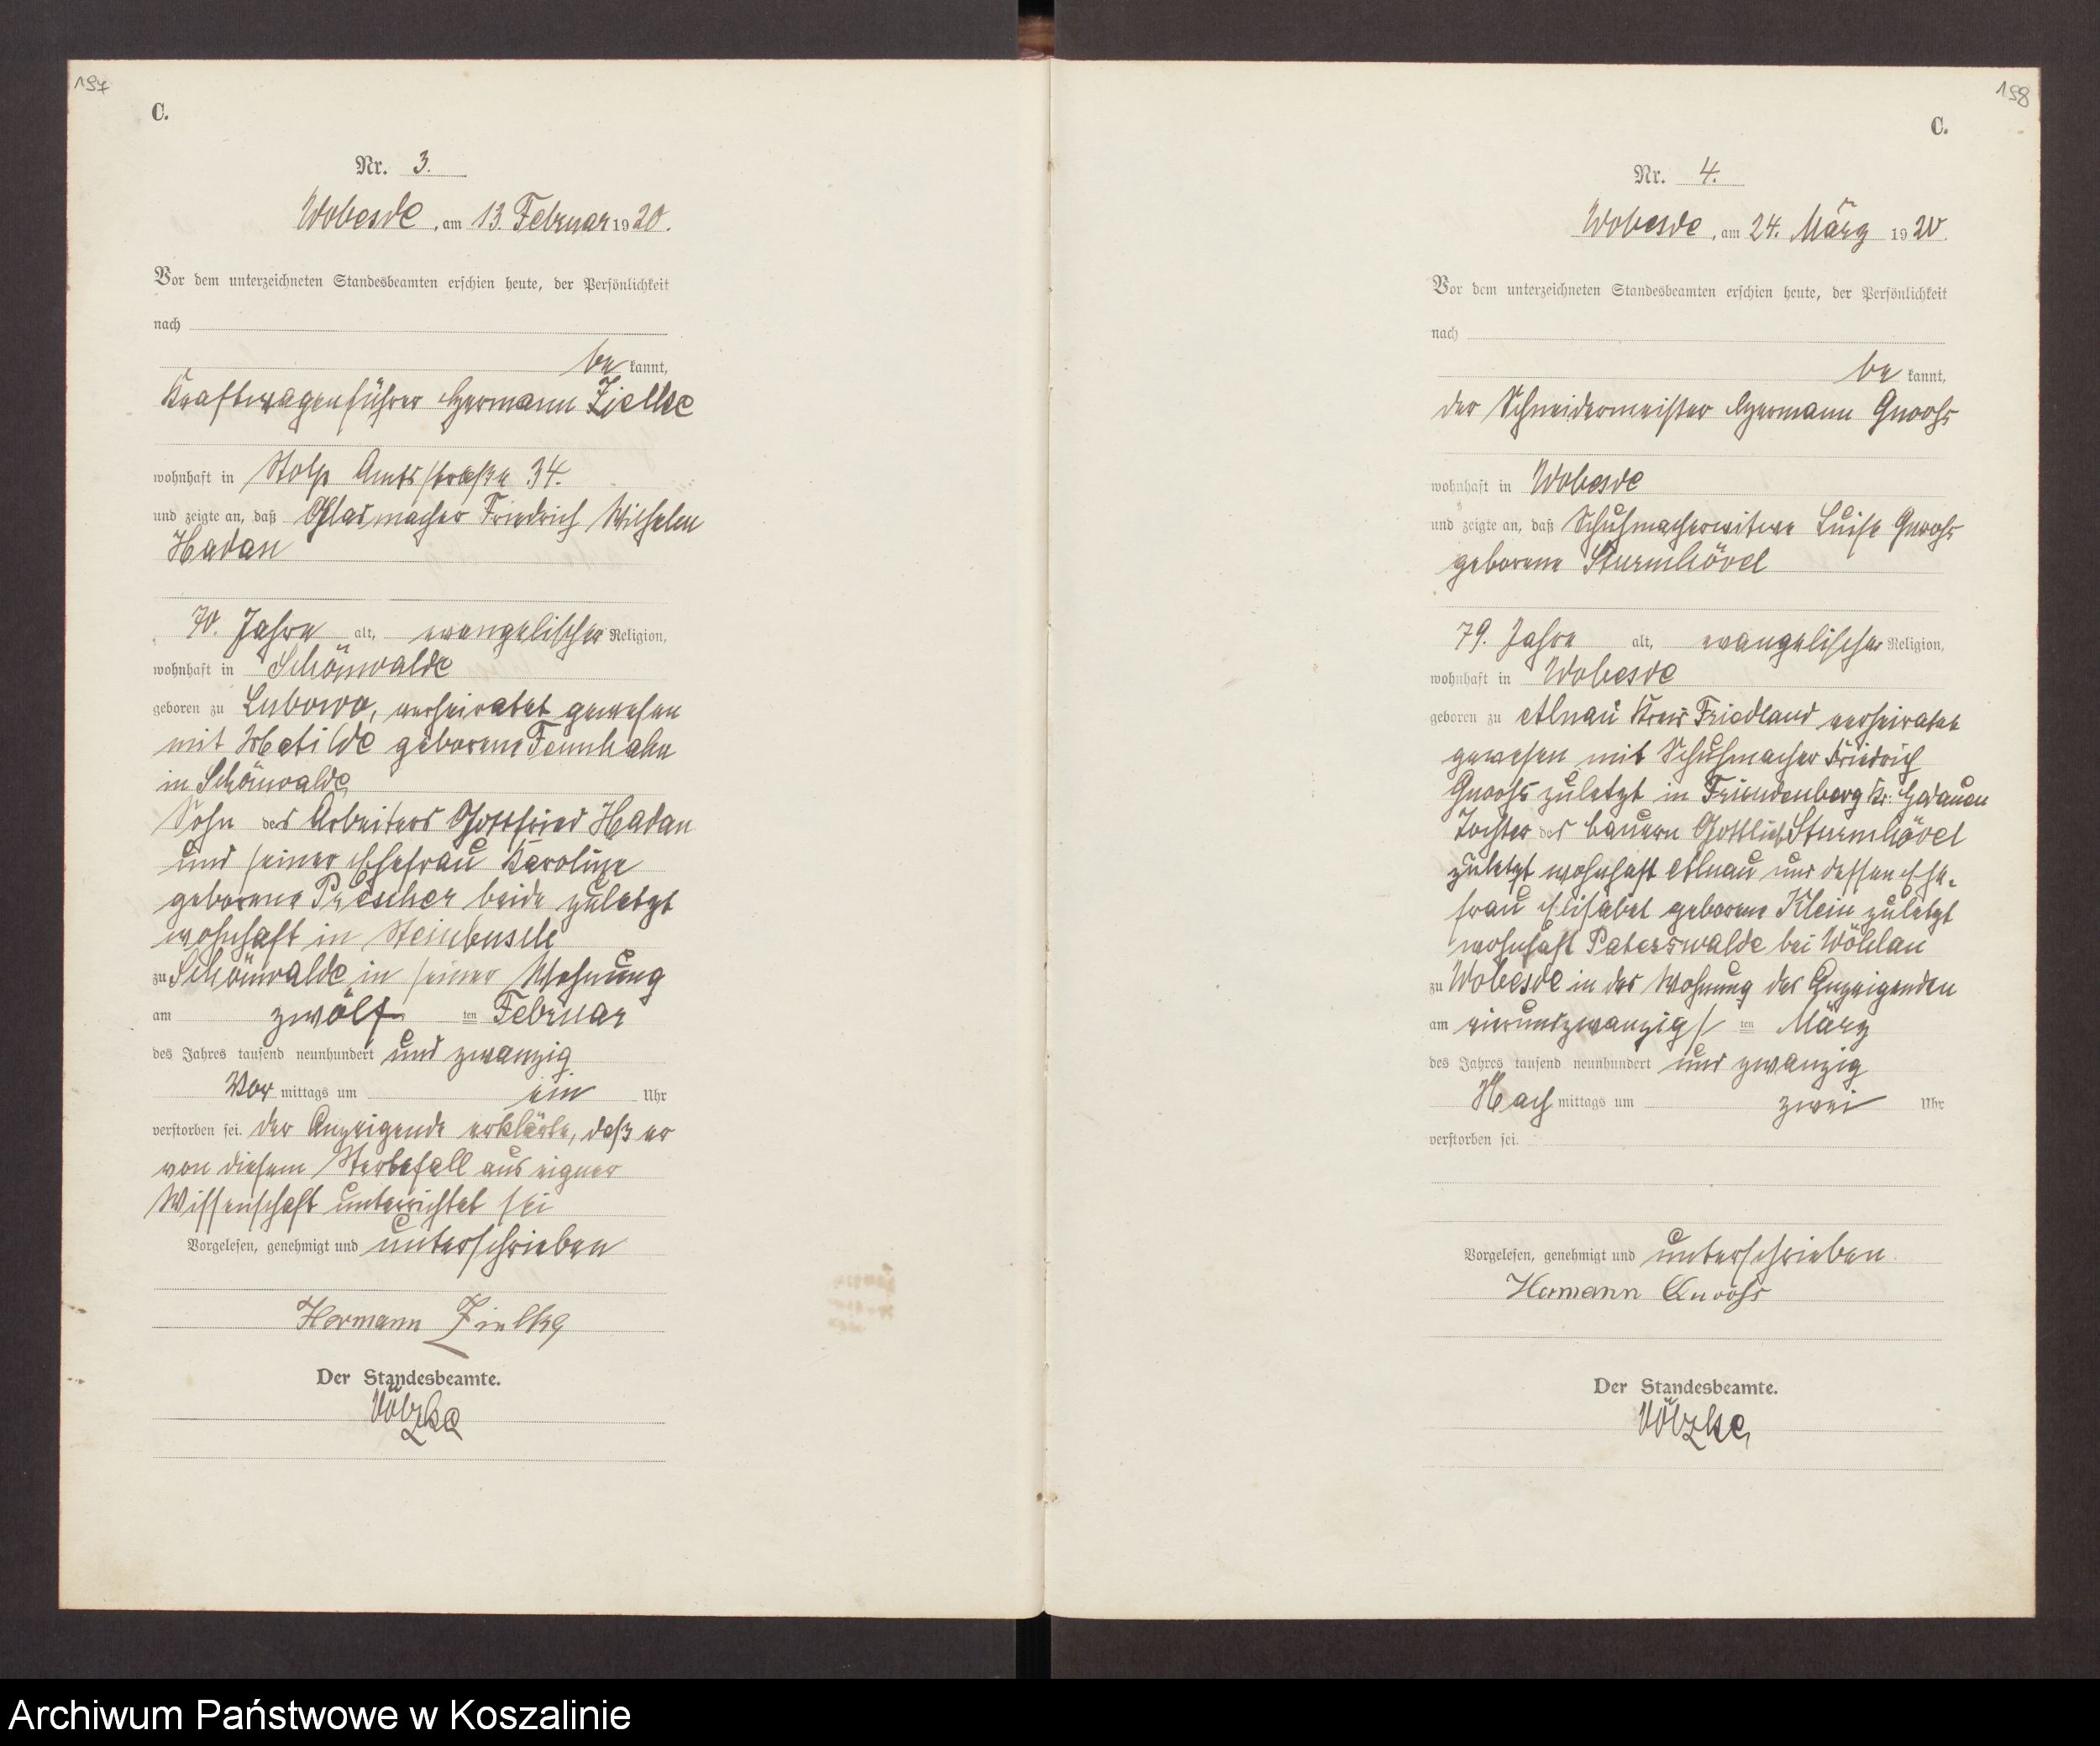 197
C.
Nr. 3.
Wobesde, am 13. Februar 1920.
Vor dem unterzeichneten Standesbeamten erschien heute, der Persönlichkeit
nach
be kannt,
Kraftwagenführer Hermann Zielke
wohnhaft in Stolp Amtsstraße 34.
und zeigte an, daß Glasmacher Friedrich Wilhelm
Hadan
70. Jahre alt, evangelischer Religion,
wohnhaft in Schönwalde
geboren zu Lubowo, verheiratet gewesen
mit Matilde geborene Fennhahn
in Schönwalde
Sohn des Arbeiters Gottfried Hadan
und seiner Ehefrau Karoline
geborene Prescher beide zuletzt
wohnhaft in Steinbusch
zu Schönwalde in seiner Wohnung
am zwölf ten Februar
des Jahres tausend neunhundert und zwanzig
Vor mittags um ein Uhr
verstorben sei. der Anzeigende erklärte, daß er
von diesem Sterbefall aus eigner
Wissenschaft unterrichtet sei
Vorgelesen, genehmigt und unterschrieben
Hermann Zielke
Der Standesbeamte.
Völzke
198
C.
Nr. 4.
Wobesde, am 24. März 1920.
Vor dem unterzeichneten Standesbeamten erschien heute, der Persönlichkeit
nach
be kannt,
der Schneidermeister Hermann Gnoohs
wohnhaft in Wobesde
und zeigte an, daß Schuhmacherwitwe Luise Gnoohs
geborene Sturmhövel
79. Jahre alt, evangelischer Religion,
wohnhaft in Wobesde
geboren zu Alnau Kreis Friedland verheiratet
gewesen mit Schuhmacher Friedrich
Gnoohs zuletzt in Friedenberg Kr. Gerdauen
Tochter des Bauern Gottlieb Sturmhövel
zuletzt wohnhaft Alnau und dessen Ehe-
frau Elisabet geborene Klein zuletzt
wohnhaft Paterswalde bei Wöhlau
zu Wobesde in der Wohnung des Anzeigenden
am vierundzwanzigs ten März
des Jahres tausend neunhundert und zwanzig
Nach mittags um zwei Uhr
verstorben sei.
Vorgelesen, genehmigt und unterschrieben.
Hermann Gnoohs
Der Standesbeamte.
Völzke
Archiwum Państwowe w Koszalinie